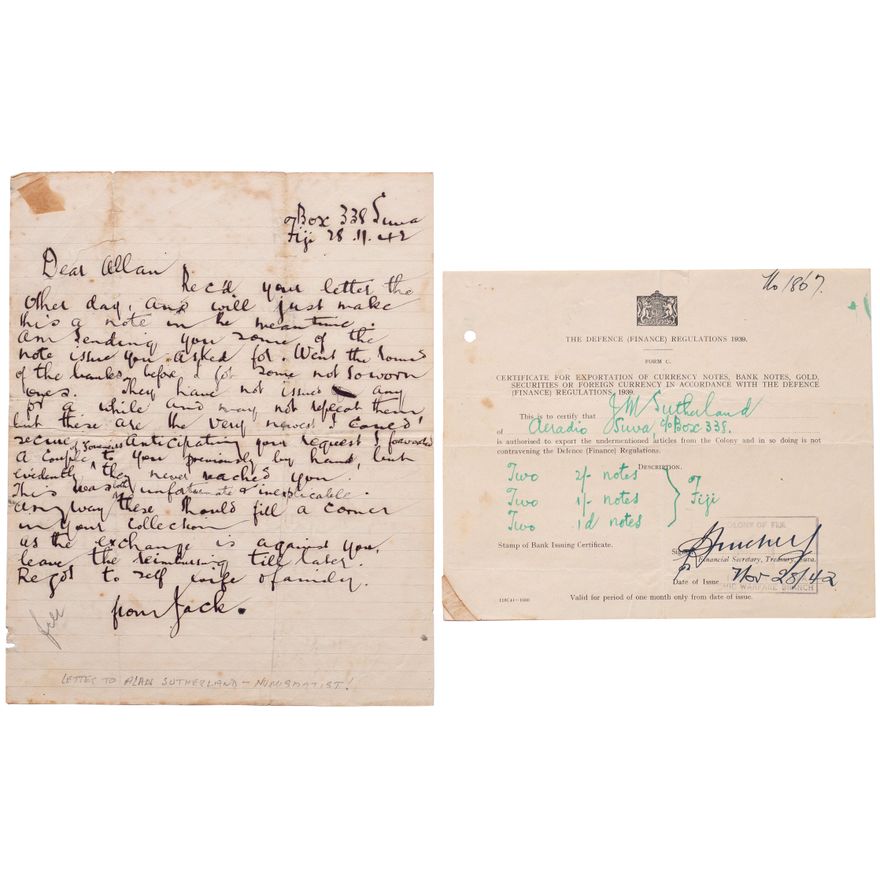 c/o Box 338 Suva
Fiji 28.11.42
Dear Allan
Rec'd your letter the
other day, and will just make
this a note in the meantime.
Am sending you some of the
note issue you asked for. Went the rounds
of the banks, before I got some not so worn
ones. They have not issued any
for a while and may not repeat them
but these are the very newest I could
secure. Anticipating your request I forwarded
a couple of to you previously by hand, but
evidently they never reached you.
This was both unfortunate & inexplicable.
Anyway these should fill a corner
in your collection
as the exchange is against you,
leave the reimbursing till later.
Regds to self wife & family.
from Jack.
LETTER TO ALAN SUTHERLAND - NUMISMATIST!
No 1867.
THE DEFENCE (FINANCE) REGULATIONS 1939.
FORM C.
CERTIFICATE FOR EXPORTATION OF CURRENCY NOTES, BANK NOTES, GOLD,
SECURITIES OR FOREIGN CURRENCY IN ACCORDANCE WITH THE DEFENCE
(FINANCE) REGULATIONS, 1939.
This is to certify that J M Sutherland
of Aeradio Suva, c/o Box 338.
is authorised to export the undermentioned articles from the Colony and in so doing is not
contravening the Defence (Finance) Regulations.
DESCRIPTION.
Two 2/- notes
Two 1/- notes of Fiji
Two 1d notes
COLONY OF FIJI
Stamp of Bank Issuing Certificate.
Financial Secretary, Treasury, Suva.
Date of Issue Nov 28/42
WARFARE BRANCH
Valid for period of one month only from date of issue.